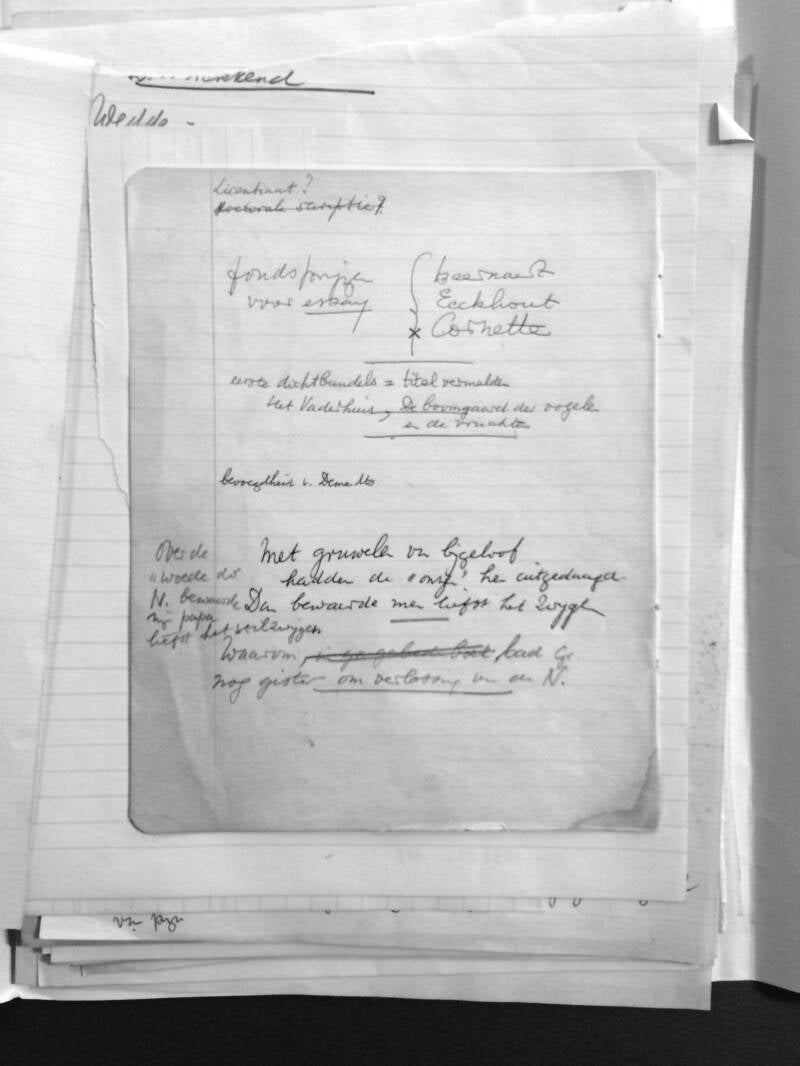 Wedde -
Licentiaat?
doctorale scriptie?
fondsprijzen
voor essay
Beernaert
Eeckhout
x Cornette
eerste dichtbundels = titel vermelden
Het Vaderhuis, De boomgaard der vogelen
en de vruchten
bevoegdheid v. Demedts
Over de
"woede der
N. bewaarde
mijn papa
liefst het stilzwijgen
Met gruwelen van bijgeloof
hadden de "onzen" hen uitgedaagd.
Dan bewaarde men liefst het zwijgen
Waarom, bad Gr
nog gister om verlossing van den N.